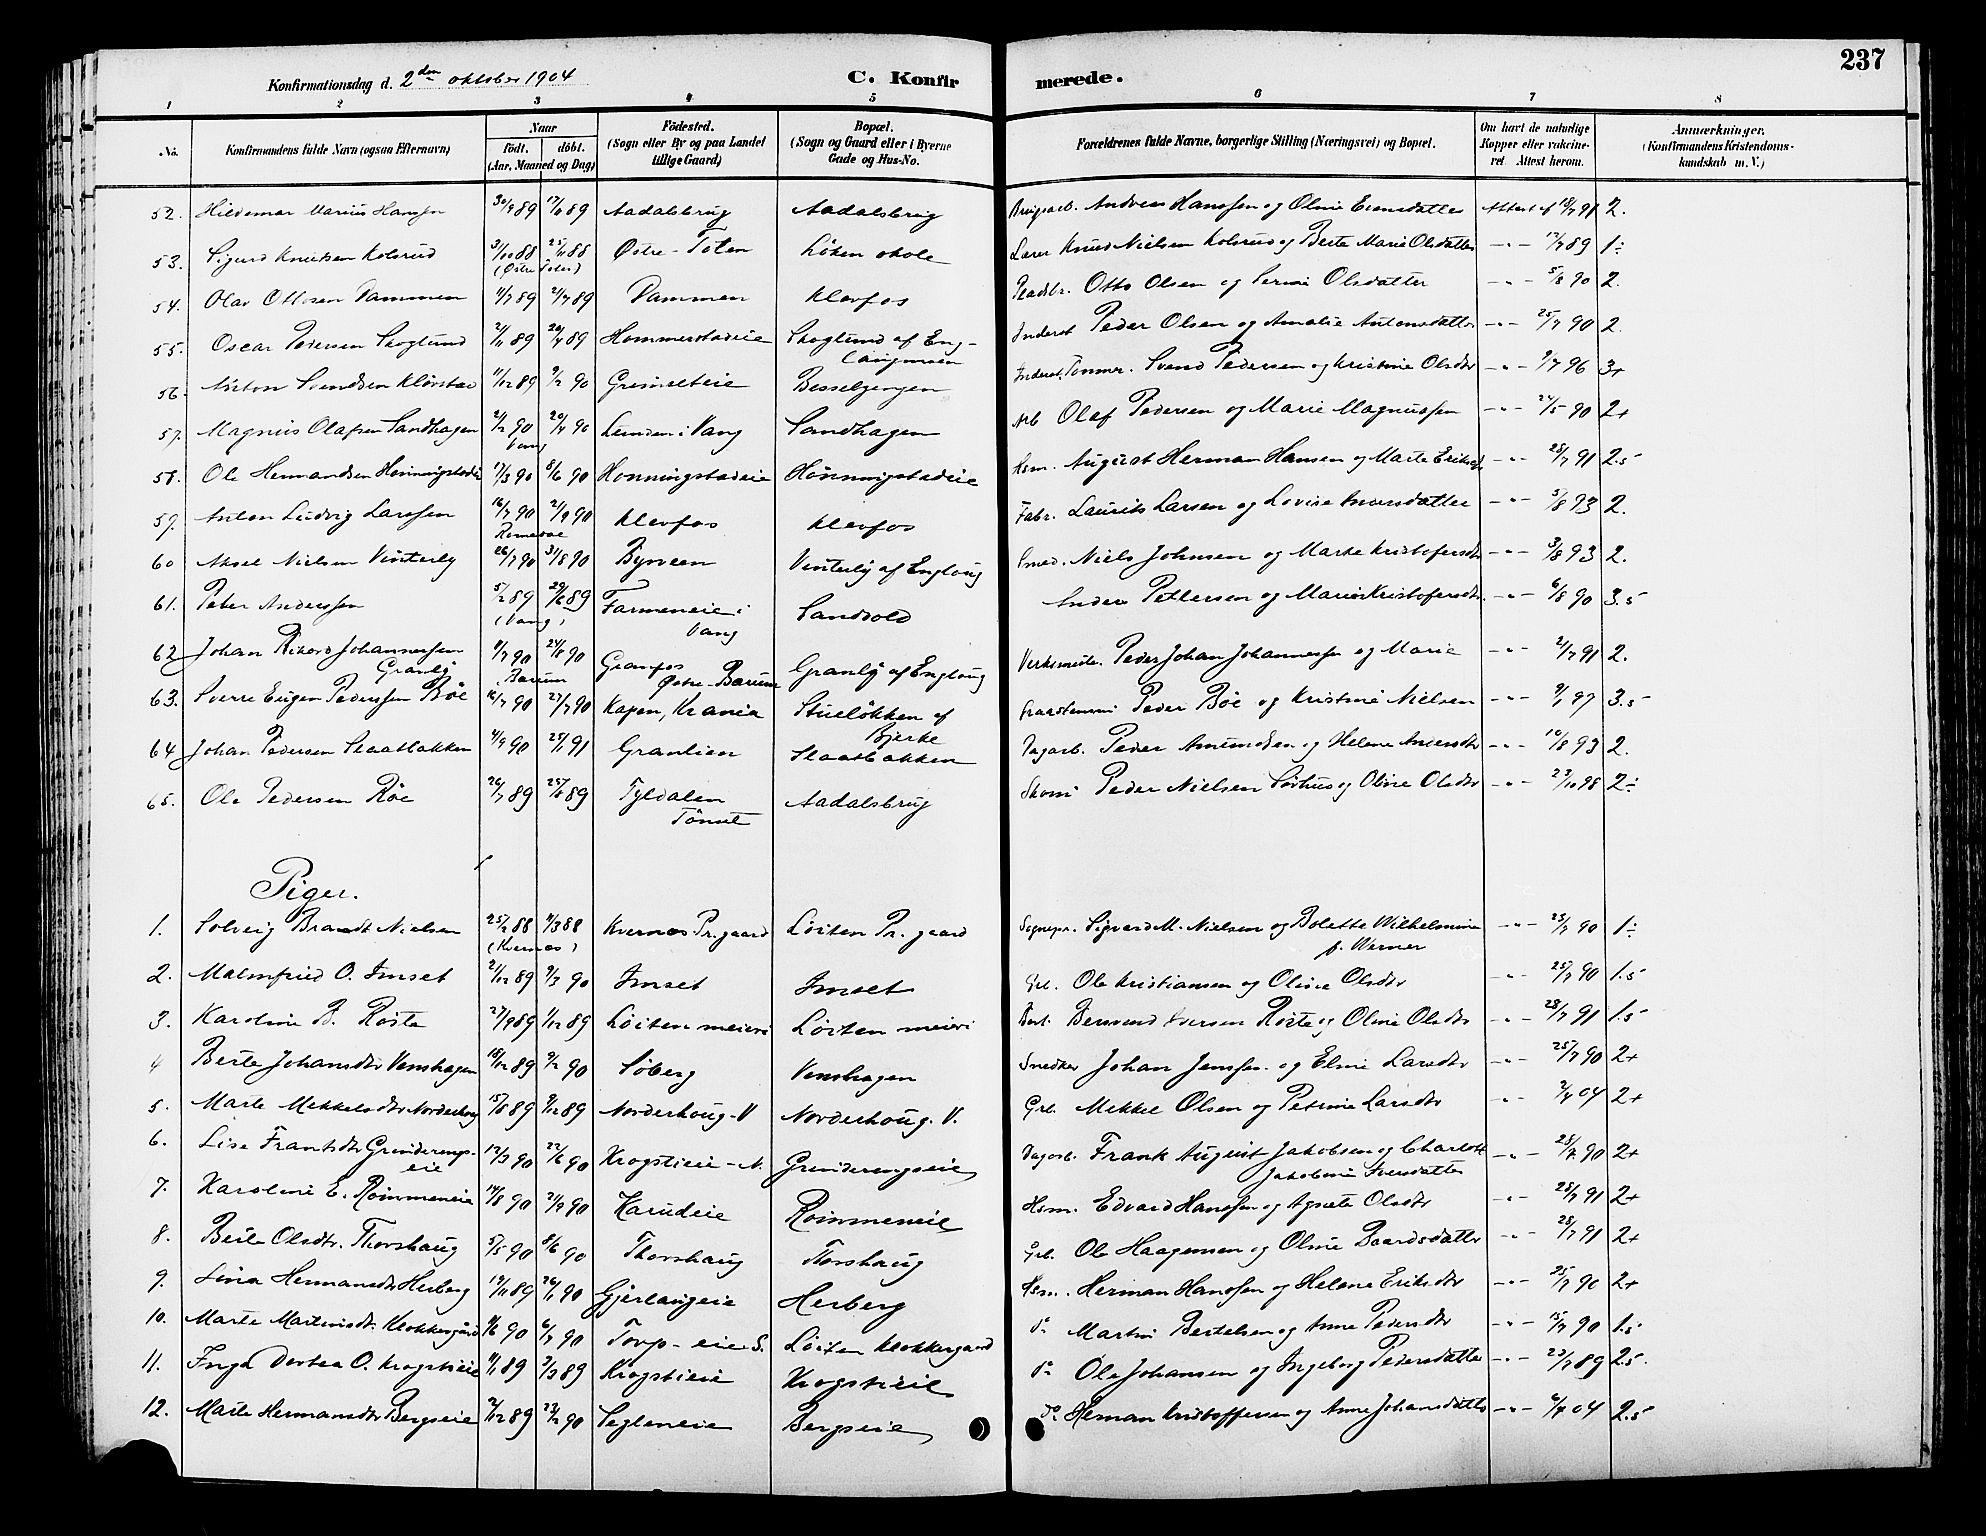 237
Konfirmationsdag d. 2den oktober 1904 C. Konfirmerede.
1 2 3 4 5 6 7 8
No. Konfirmandens fulde Navn (ogsaa Efternavn) Naar födt. döbt. (Aar, Maaned og Dag) Födested. (Sogn eller By og paa Landet tillige Gaard) Bopæl. (Sogn og Gaard eller i Byerne Gade og Hus-No. Forældrenes fulde Navne, borgerlige Stilling (Næringsvei) og Bopæl. Om havt de naturlige Kopper eller vakcineret. Attest herom. Anmærkninger. (Konfirmandens Kristendomskundskab m. V.)
52. Hildemar Marius Hansen 30/9 89 17/11 89 Aadalsbrug Aadalsbrug Andreas Hanssen og Oline Evensdatter Attest af 18/7 91 2.
53. Sigurd Knutsen Kolsrud 31/10 88 25/11 88 Østre-Toten Løken skole Lærer Knud Nielsen Kolsrud og Berte Marie Olsdatter -"- 12/7 89 1÷
(Østre Toten)
54. Olav Ottosen Dammen 11/7 89 21/7 89 Dammen Klevfos Pladsbr. Otto Olsen og Serine Olsdatter -"- 5/8 90 2.
55. Oscar Pedersen Skoglund 2/11 89 Hommerstadeie Skoglund af Eng- Inderst Peder Olsen og Amalie Antonsdatter -"- 25/7 90 2.
56. Anton Svendsen 11/12 89 9/2 90 Grimseteie Inderst, Tømmr. Svend Pedersen og Kristine Olsdtr -"- 9/7 96 3+
57. Magnus Olafsen Sandhagen 2/2 90 20/4 90 Lunden i Vang Sandhagen Arb Olaf Pedersen og Marie Magnussen -"- 24/5 90 2+
Vang
58. Ole Hermandsen Honningstadeie 17/3 90 8/6 90 Honningstadeie Hönningstadeie Hsm. August Herman Hansen og Marte -"- 28/7 91 2.5
59. Anton Ludvig Larssen 16/7 90 21/9 90 Klevfos Klevfos Fabr. Laurits Larsen og Lovise Iversdatter -"- 5/8 93 2.
60 Aksel Nielsen Vinterly 26/7 90 31/8 90 Byveen Vinterly af Engloug Smed. Niels Johnsen og Marte Kristofersdtr -"- 3/8 93 2.
61. Peter Anderssen 5/2 89 29/6 89 Farmeneie i Vang Sandvold Anders Pettersen og Marie Kristofersdtr. -"- 6/8 90 3.5
(Vang)
62 Johan Rikard Johannessen Granly 11/7 90 24/8 90 Granfos Østre-Bærum Granly af Engloug Verksmester. Peder Johan Johannessen og Marie -"- 2/7 91 2.
Bærum
63. Sverre Eugen Pederssen Bøe 12/7 90 27/7 90 Kapen, Krania Stueløkken af Bjerke Peder Bøe og Kristine Nielsen -"- 9/1 97 3.5
64 Johan Pedersen Slaatbakken 4/9 90 25/1 91 Granlien Slaatbakken Dagarb. Peder Amundsen og Helene Andersdtr -"- 10/8 93 2.
65. Ole Pedersen Røe 26/7 89 25/8 89 Tyldalen Tönset Aadalsbrug Skom Peder Nielsen Sørhus og Oline Olsdtr -"- 23/10 98 2÷
Piger.
1. Solveig Brandt Nielsen 25/2 88 4/3 88 Kvernæs Pr.gaard Löiten Pr.gaard Sognepr. Sigvard M. Nielsen og Bolette Wilhelmine f. Werner -"- 23/7 90 1÷
(Kvernæs)
2. Malmfried O. Imset 21/12 89 9/3 90 Imset Imset Grl. Ole Kristiansen og Oline Olsdtr -"- 25/7 90 1.5
3. Karoline B. Røste 27/9 89 1/12 89 Löiten meieri Löiten meieri Best. Bersvend Iversen Røste og Oline Olsdtr -"- 28/7 91 1.5
4 Berte Johansdtr Venshagen 18/12 89 9/2 90 Söberg Venshagen Snedker Johan Jenssen og Eline Larsdtr -"- 25/7 90 2+
5. Marte Mekkelsdtr Norderhoug 15/10 89 8/12 89 Norderhoug-V Norderhoug. V. Grl. Mekkel Olsen og Petrine Larsdtr -"- 2/4 04 2+
6. Lise Frantsdtr Grinderengseie 12/3 90 22/6 90 Krogstieie-N. Grinderengseie Dagarb. Frank August Jakobsen og Charlotte Jakobine Iversdatter -"- 28/7 90 2+
7. Karoline E. Roimmeneie 14/8 90 21/9 90 Karudeie Roimmeneie Hsm. Edvard Hanssen og Agnete Olsdtr -"- 28/7 91 2+
8. Berte Olsdtr. Thorshaug 5/5 90 8/6 90 Thorshaug Thorshaug Grl. Ole Haagensen og Oline Baardsdatter -"- 28/7 91 2+
9. Lina Hermansdtr Herberg 19/11 89 26/1 90 Gjerlaugeie Herberg Hsm. Herman Hanssen og Helene Eriksdtr -"- 25/7 90 2+
10. Marte Martinisdtr. Klokkergård 11/6 90 6/7 90 Torp-eie S. Löiten Klokkergaard do Martin Bertelsen og Anne Pedersdtr -"- 15/7 90 1.5
11. Inga Dortea O. Krogstieie 11/1 89 3/3 89 Krogstieie Krogstieie do Ole Johansen og Ingeborg Pedersdatter -"- 23/7 89 2.5.
12. Marte Hermansdtr Bergseie 21/12 89 23/2 90 Segleneie Bergseie do Herman Kristoffersen og Anne Johansdatter -"- 6/4 04 2.5